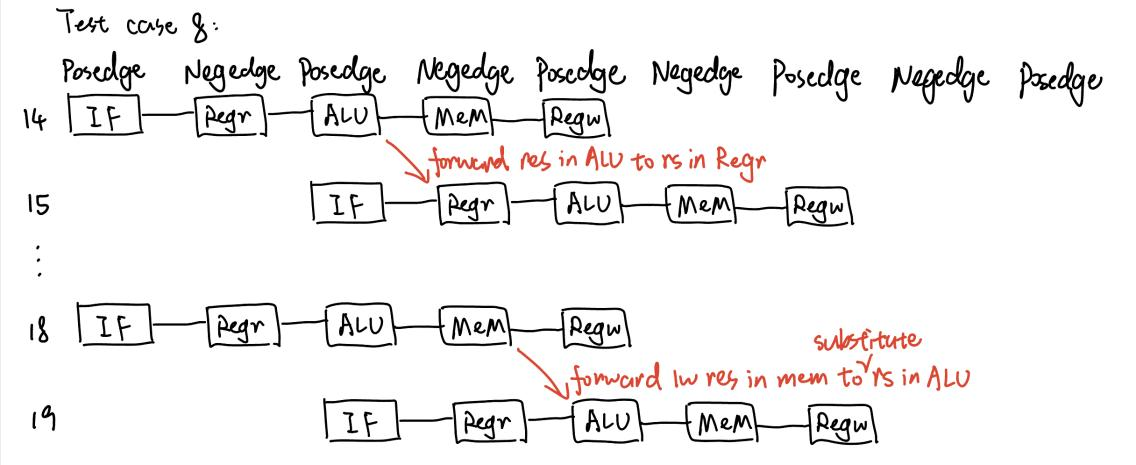 Test case 8:
Posedge Negedge Posedge Negedge Posedge Negedge Posedge Negedge Posedge
14 IF Regr ALU MeM Regw
forward res in ALU to rs in Regr
15 IF Regr ALU MeM Regw
⋮
18 IF Regr ALU MeM Regw
substitute
forward lw res in mem to √ rs in ALU
19 IF Regr ALU MeM Regw